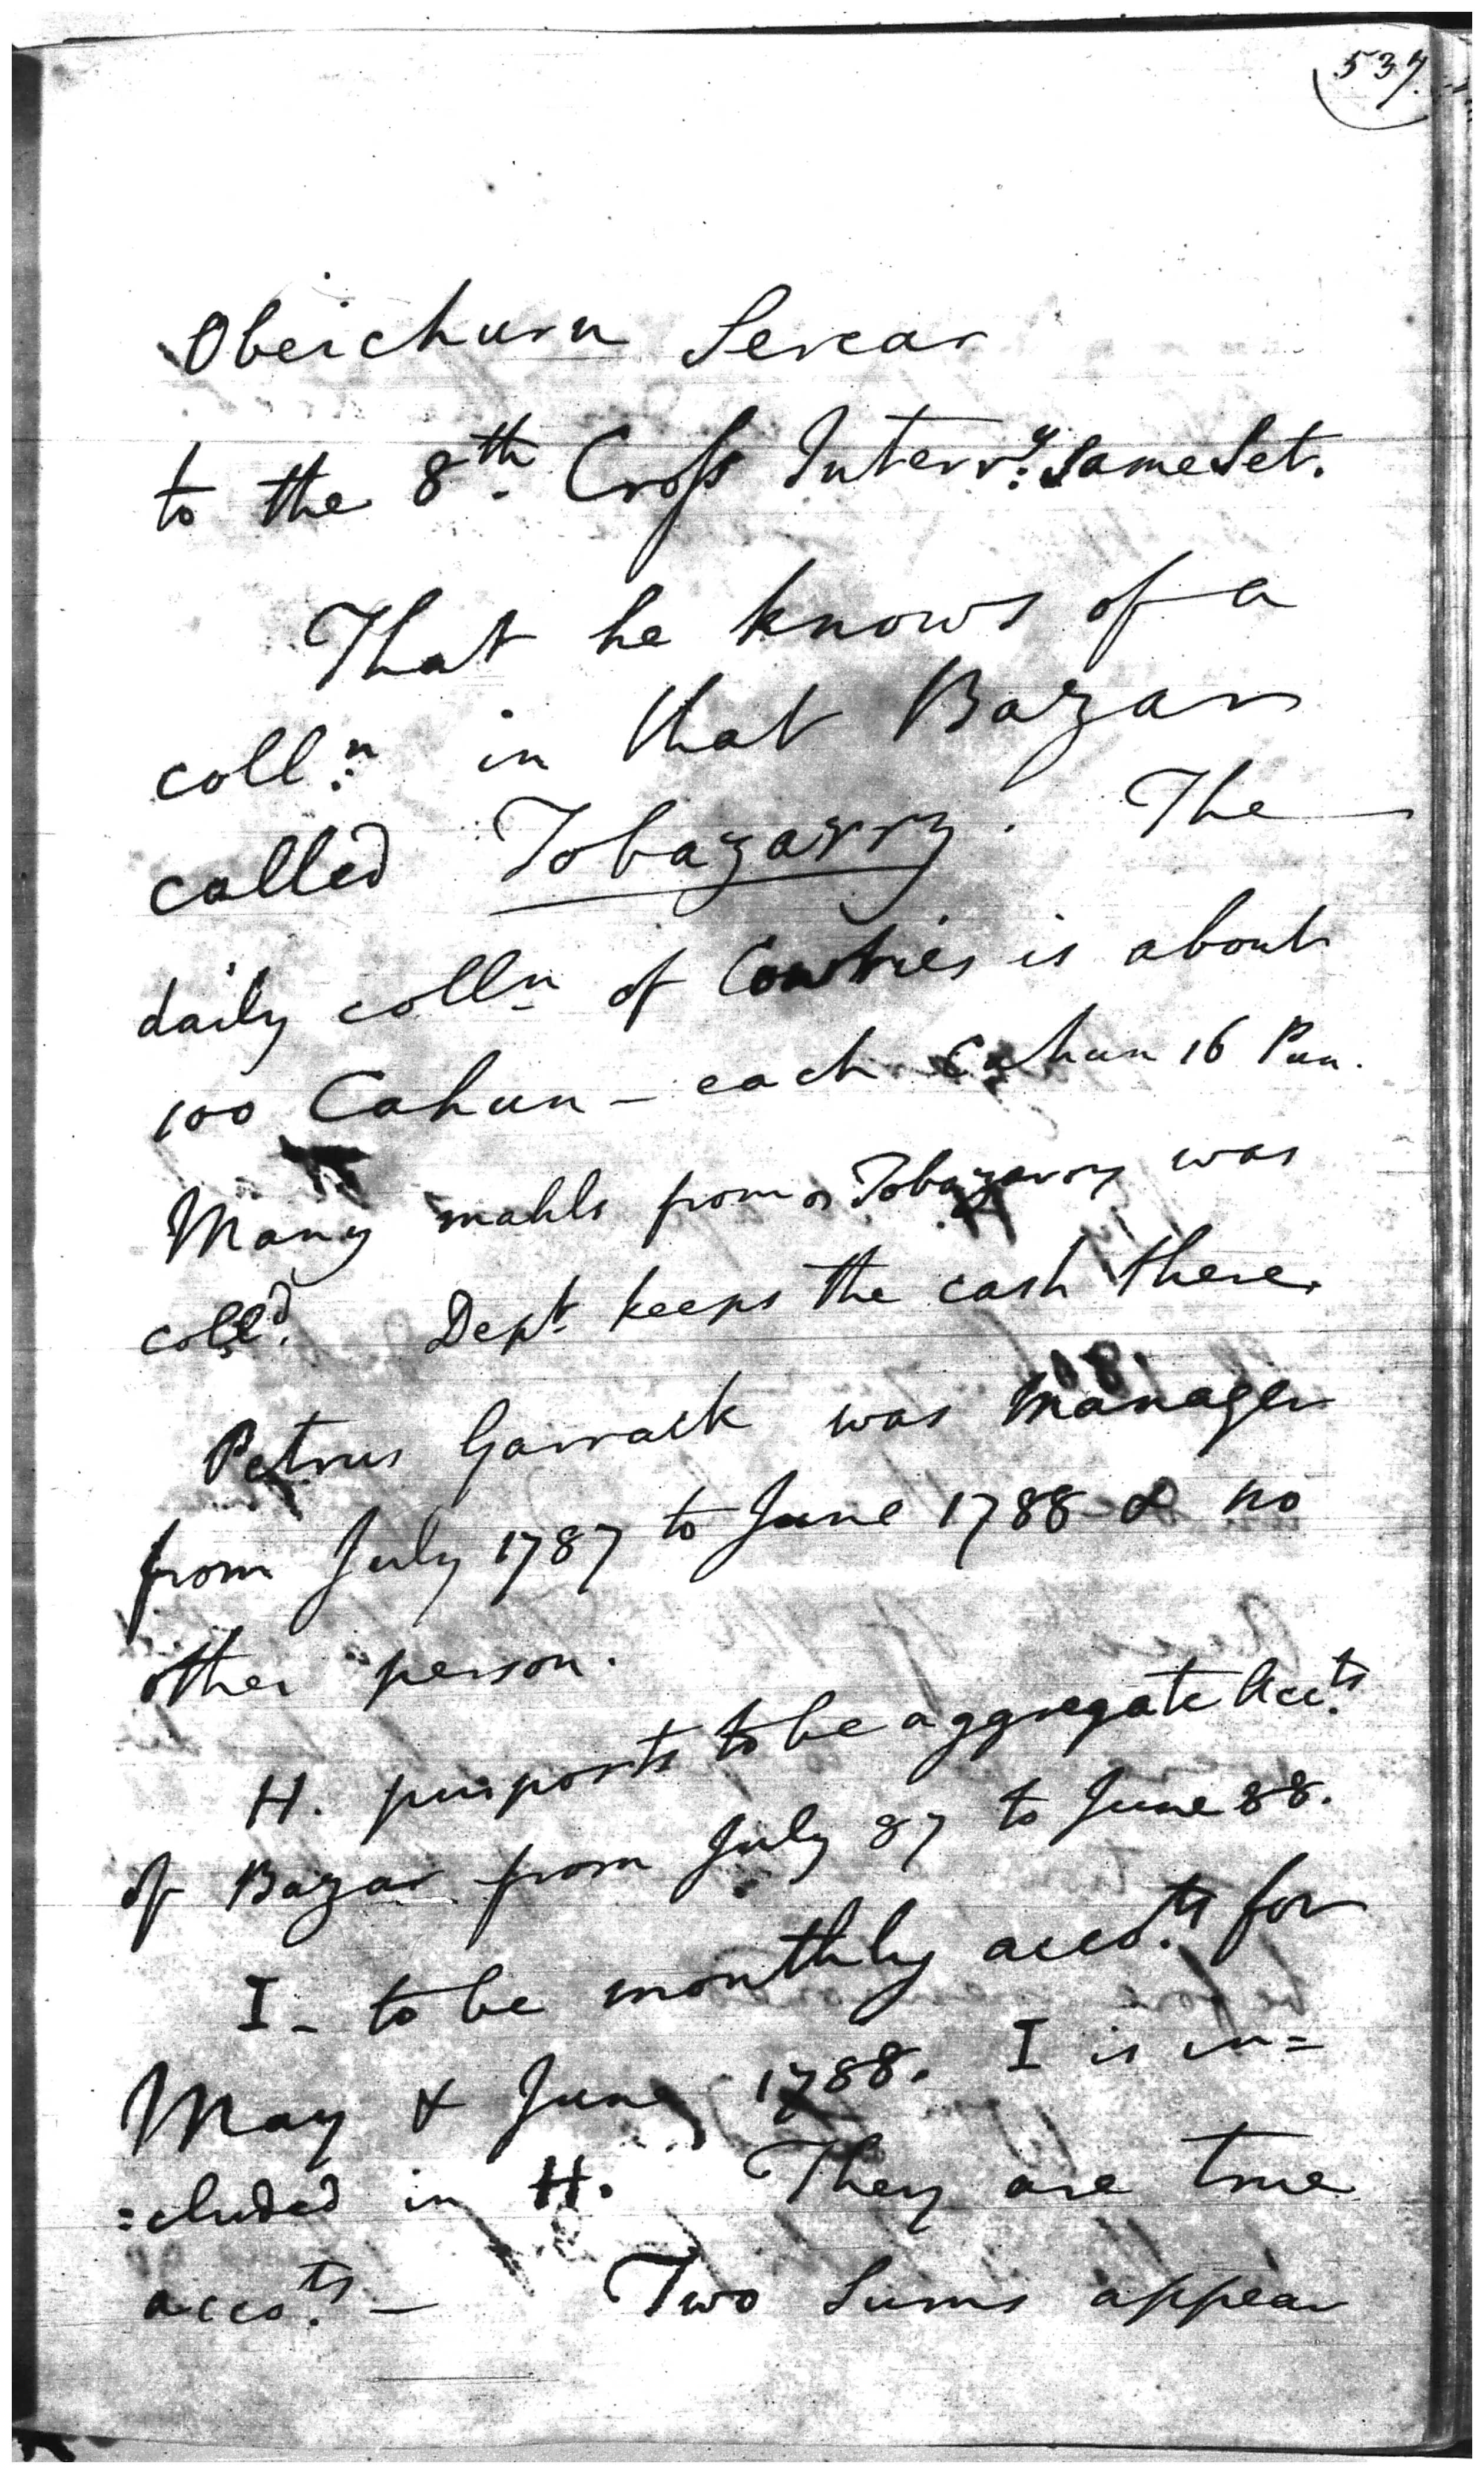 537.
Obeichurn Sercar
to the 8th. Cross Interry. same Set.
That he knows of a
colln. in that Bazar
called Tobazarry. The
daily colln of Cowries is about
100 Cahun - each Cahun 16 Pun.
Many mahls from Tobazarry was
colld. Dept. keeps the cash there.
Petrus Garratk was Manager
from July 1787 to June 1788 - & no
other person.
H. purports to be aggregate Accts.
of Bazar from July 87 to June 88.
I - to be monthly accots. for
May & June 1788. I is in=
=cluded in H. They are true
accots. - Two Sums appear